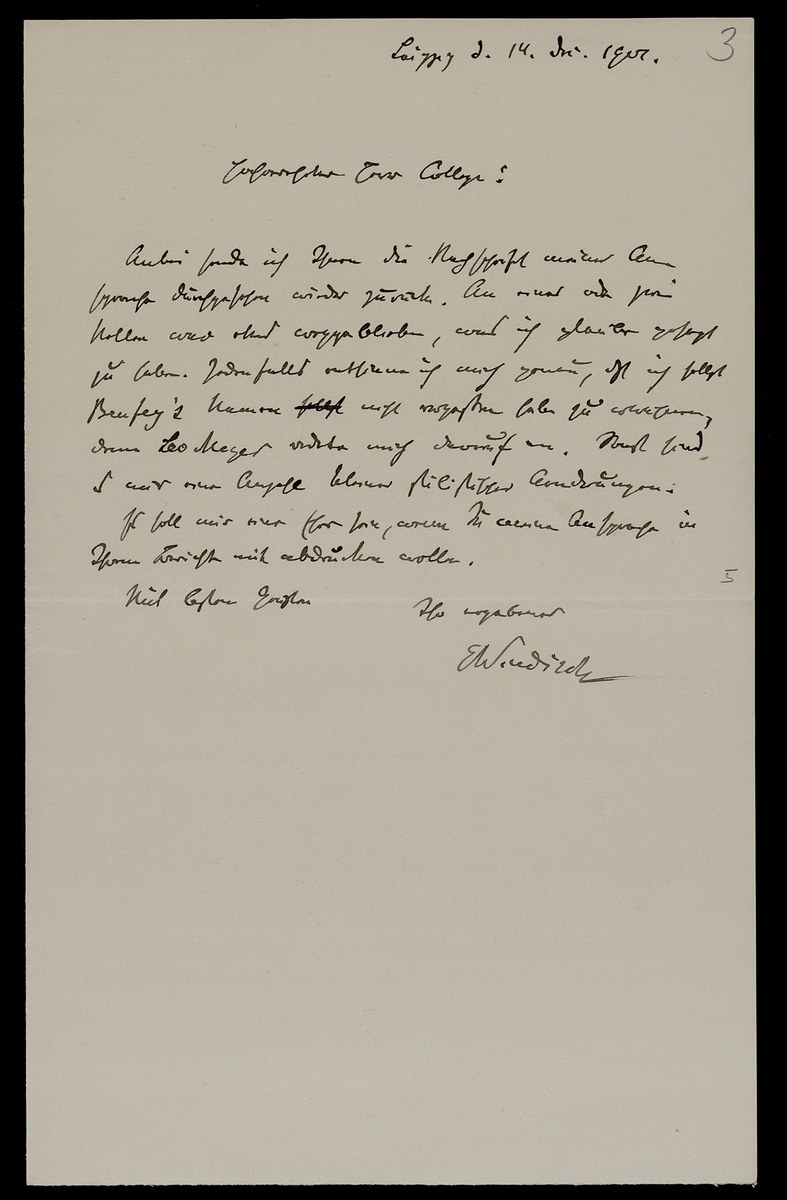 3
Leipzig d. 14. Dec. 1901.
Hochverehrter Herr College!
Anbei sende ich Ihnen die Nachschrift meiner An-
sprache durchgesehen wieder zurück. An einer oder zwei
Stellen war etwas weggeblieben, was ich glaube gesagt
zu haben. Jedenfalls entsinne ich mich genau, daß ich selbst
Benfey's Namen nicht vergessen habe zu erwähnen,
denn Leo Meyer redete mich darauf an. Sonst sind
es nur eine Anzahl kleiner stilistischer Aenderungen.
Es soll mir eine Ehre sein, wenn Sie meine Ansprache in
Ihrem Berichte mit abdrucken wollen.
5
Mit bestem Gruße
Ihr ergebener
EWindisch